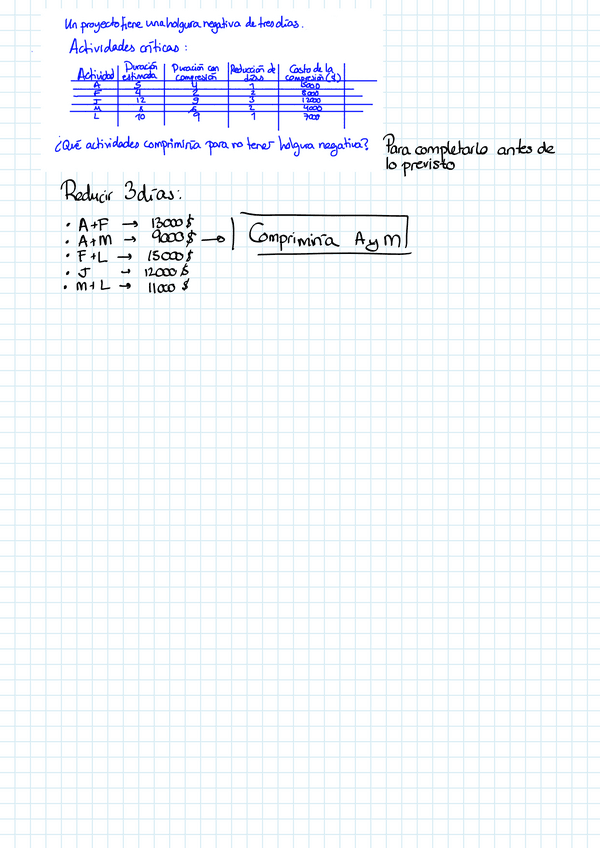 Un proyecto tiene una holgura negativa de tres días.
Actividades críticas :
Actividad | Duración estimada | Duración con compresión | Reducción de días | Costo de la compresión ($)
A | 5 | 4 | 1 | 5000
F | 4 | 2 | 2 | 8000
J | 12 | 9 | 3 | 12000
M | 8 | 6 | 2 | 4000
L | 10 | 9 | 1 | 7000
¿Qué actividades comprimiría para no tener holgura negativa? Para completarlo antes de
lo previsto
Reducir 3 días:
• A+F → 13000 $
• A+M → 9000 $ → Comprimiría A y M
• F+L → 15000 $
• J → 12000 $
• M+L → 11000 $